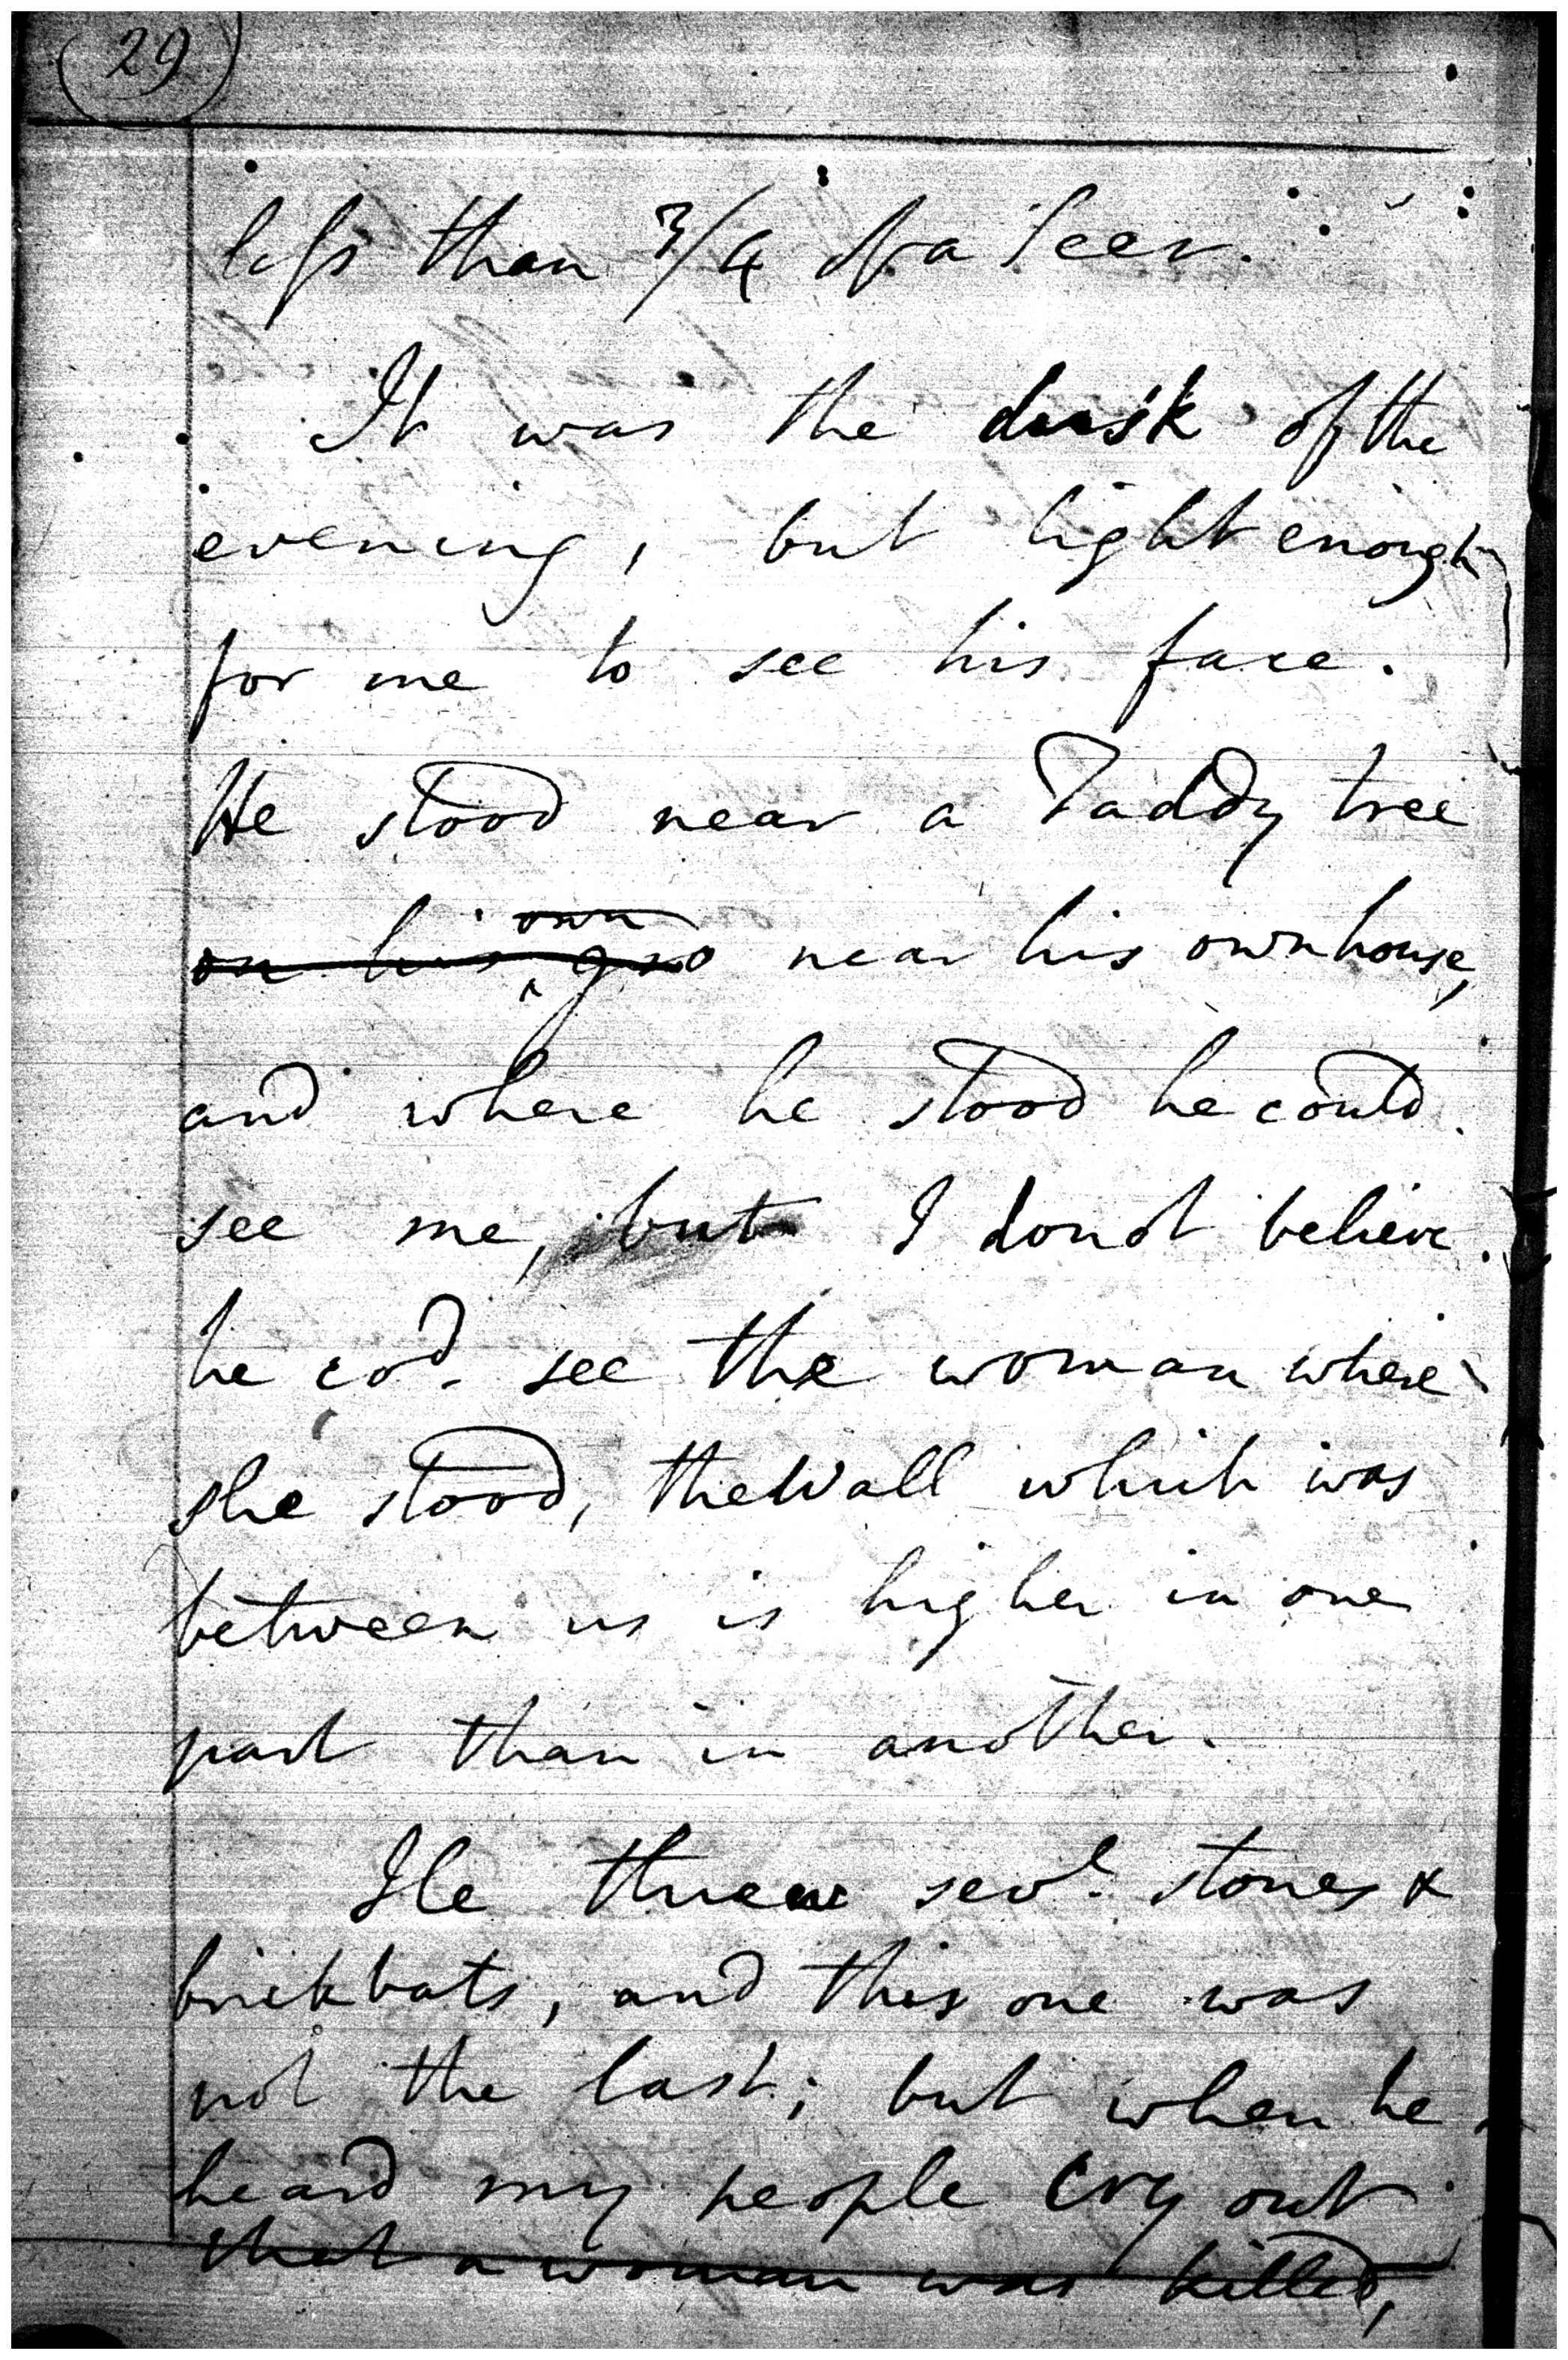 29
less than 3/4 of a Seer.
It was the dusk of the
evening, but light enough
for me to see his face.
He stood near a Taddy tree
own
on his gnd near his own house,
and where he stood he could
see me, but I do not believe
he cod. see the woman where
she stood, the Wall which was
between us is higher in one
part than in another.
He threw sevl. stones &
brickbats, and this one was
not the last; but when he
heard my people cry out
that a woman was killed,